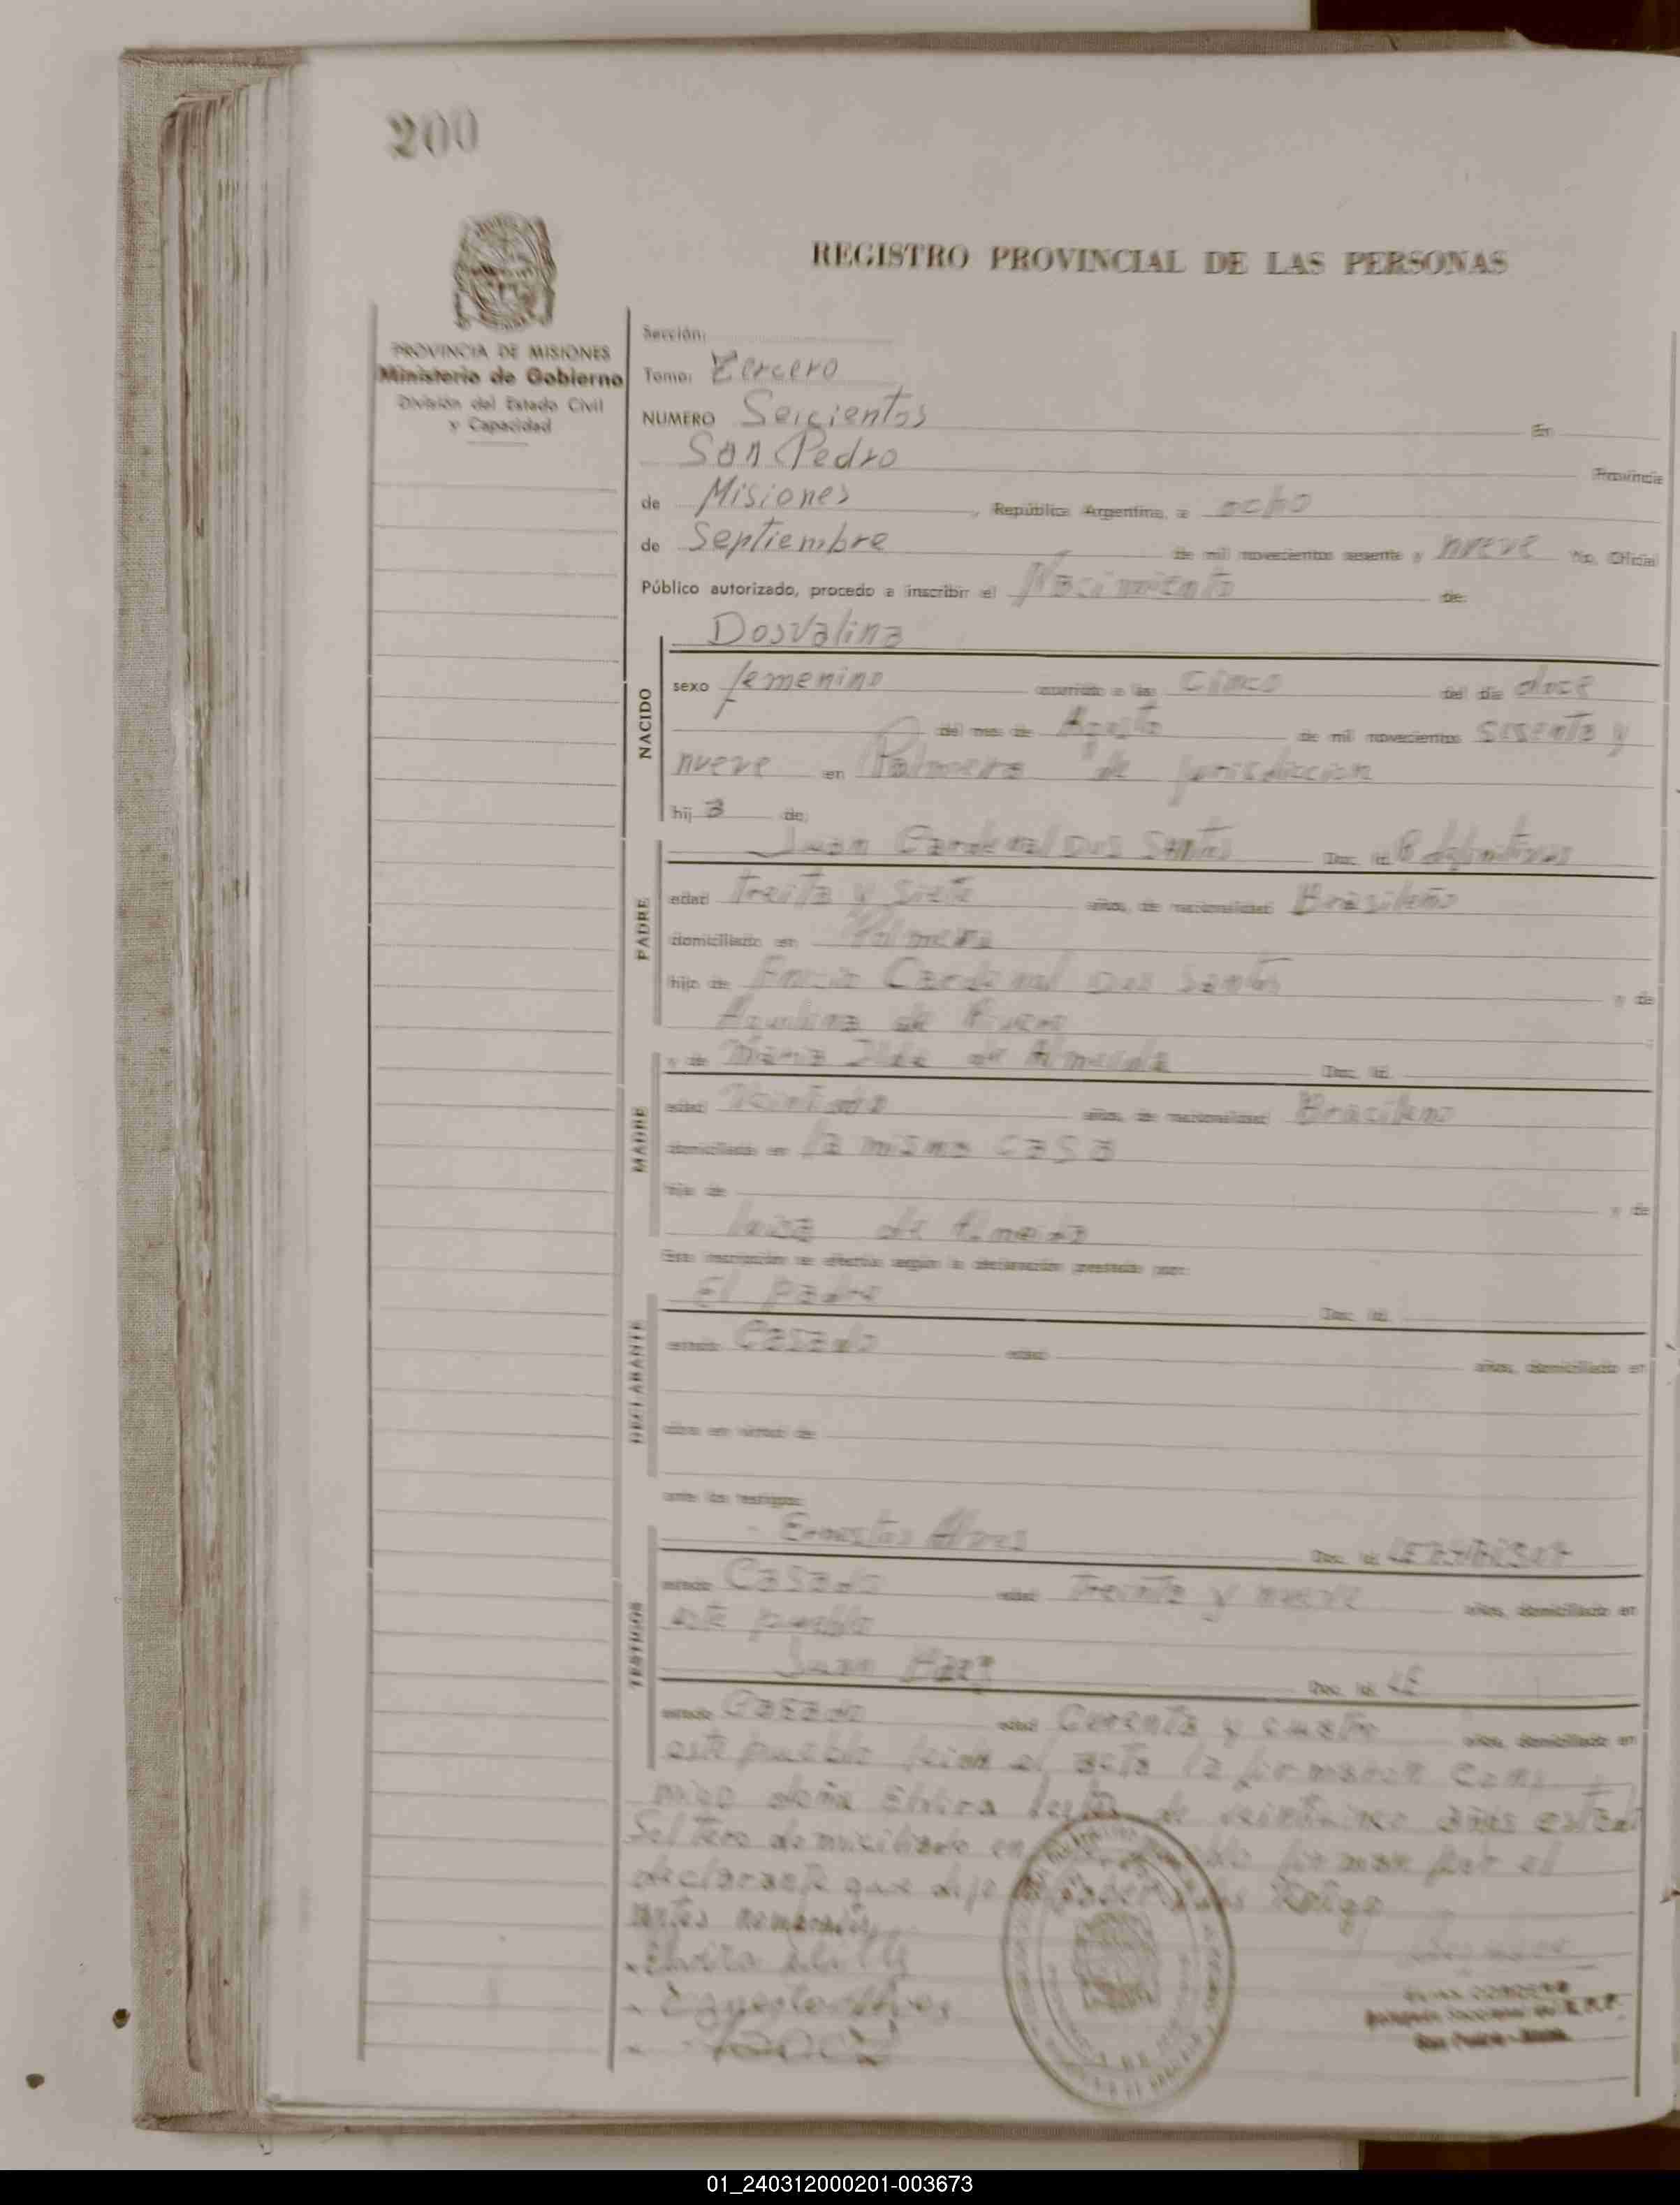 200
REGISTRO PROVINCIAL DE LAS PERSONAS
PROVINCIA DE MISIONES
Ministerio de Gobierno
División del Estado Civil
y Capacidad
Sección:
Tomo: Tercero
NUMERO Seicientos En
San Pedro Provincia
de Misiones, República Argentina, a ocho
de Septiembre de mil novecientos sesenta y nueve Yo, Oficial
Público autorizado, procedo a inscribir el Nacimiento de:
NACIDO
Dosvalina
sexo femenino ocurrido a las cinco del día doce
del mes de Agosto de mil novecientos sesenta y
nueve en Palmera de jurisdiccion
hija de:
PADRE
Juan Cardenal Dos Santos Doc. Id.
edad treita y siete años, de nacionalidad Brasileño
domiciliado en Palmera
hijo de Cardenal Dos Santos y de
de
MADRE
y de Maria de Almeida Doc. Id.
edad años, de nacionalidad Brasileno
domiciliada en la misma casa
hija de y de
de Almeida
Esta inscripción se efectúa según la declaración prestada por:
DECLARANTE
El padre Doc. Id.
estado Casado edad años, domiciliado en
obra en virtud de
ante los testigos:
TESTIGOS
Ernestos Alves Doc. Id. LE
estado Casado edad treinta y nueve años, domiciliado en
este pueblo
Juan Doc. Id. LE
estado Casado edad Curenta y cuatro años, domiciliado en
este pueblo leida el acta la firmaron con
migo doña de años
Soltero domiciliado en firman por el
declarante que dijo
antes
01_240312000201-003673